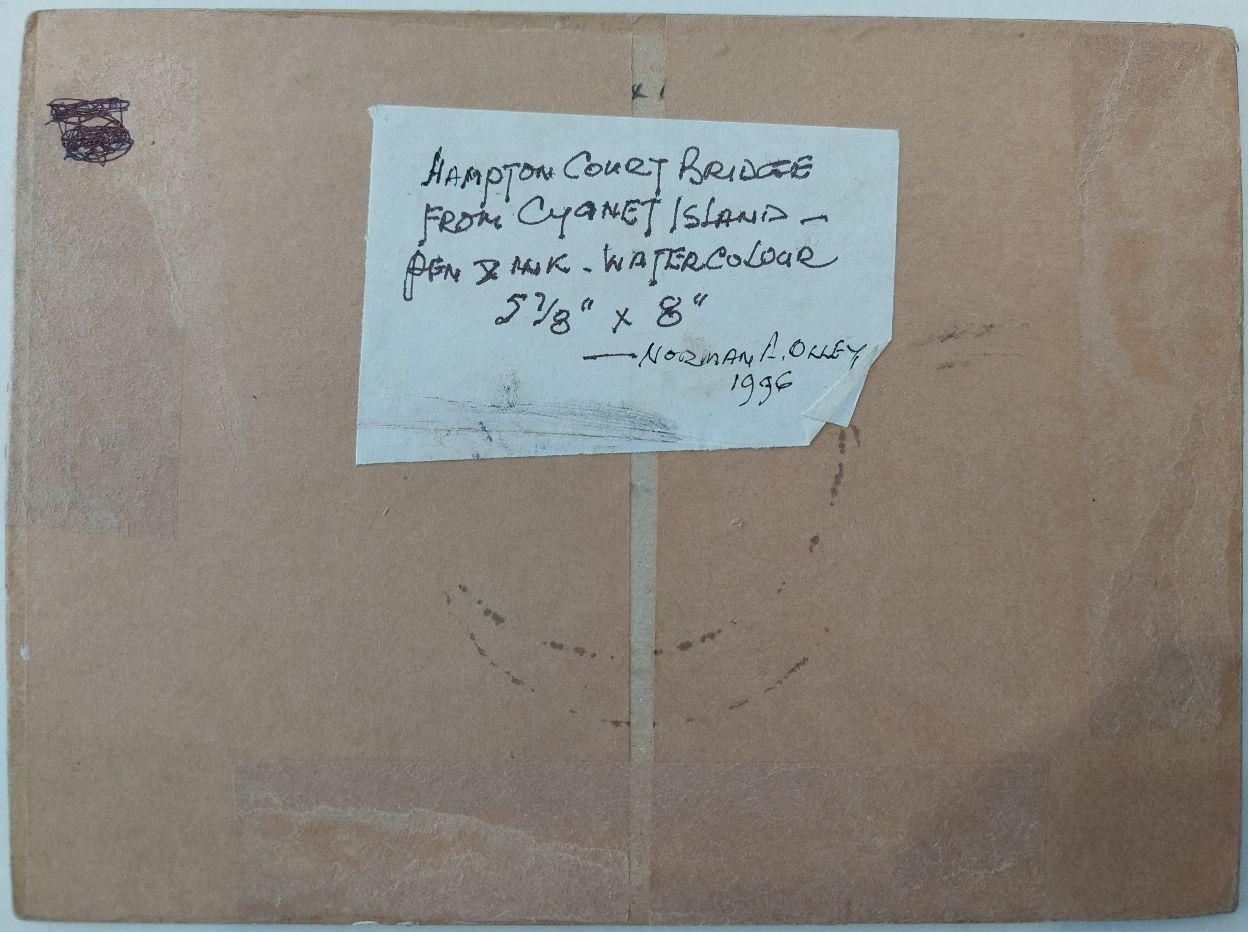 HAMPTON COURT BRIDGE
FROM CYGNET ISLAND –
PEN & INK - WATERCOLOUR
5 7/8" x 8"
— NORMAN A. OLLEY,
1996